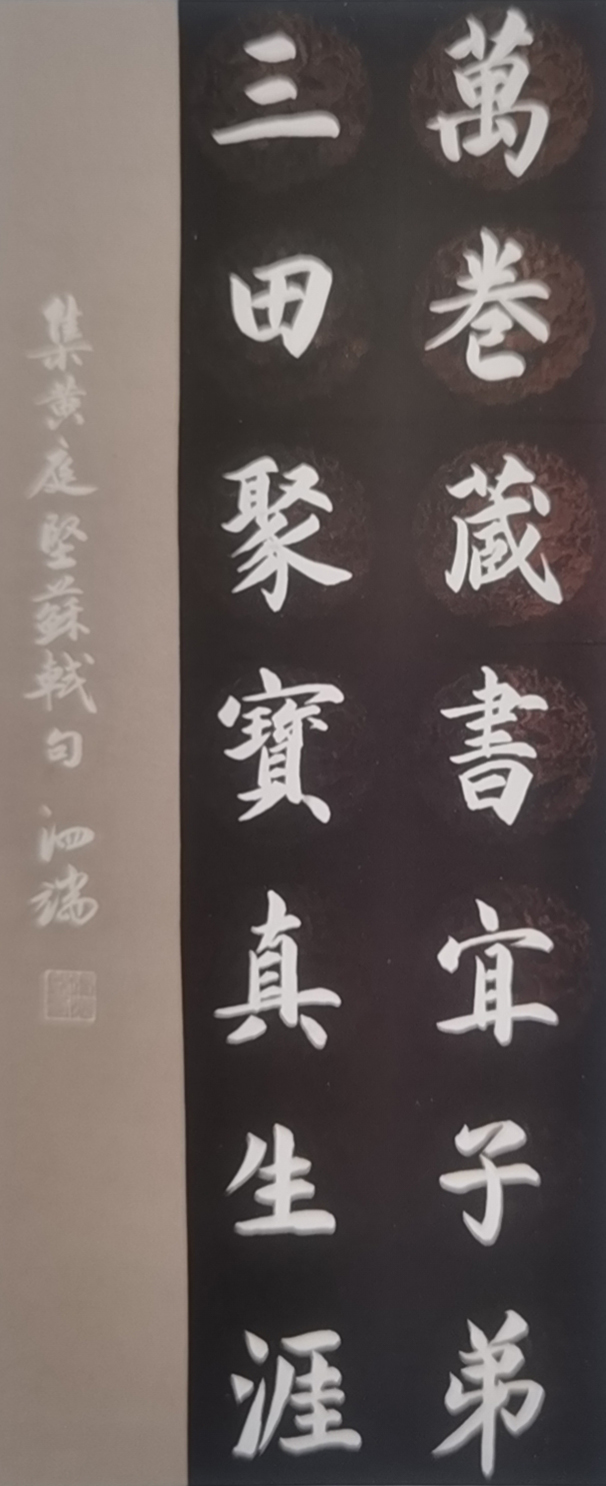 萬卷藏書宜子弟
三田聚寶真生涯
集黄庭堅蘇軾句 泗端